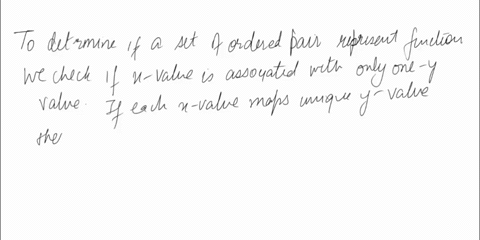 To determine if a set of ordered pair represent function
We check if x-value is assoyated with only one-y
value. If each x-value maps unique y-value
the